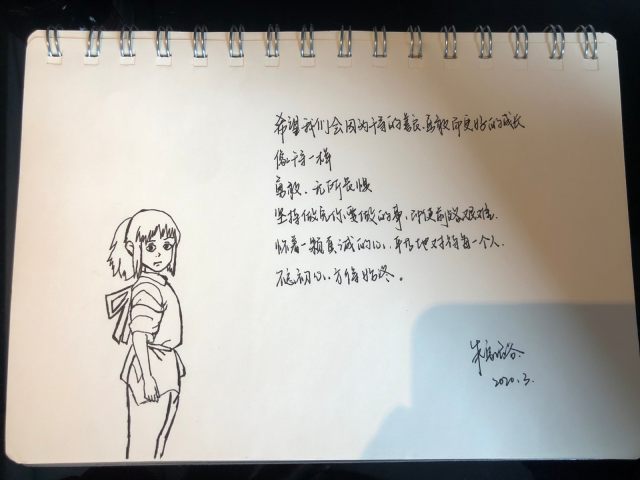 希望我们会因为千寻的善良、勇敢而更好的成长
像千寻一样
勇敢、无所畏惧
坚持做完你要做的事,即使前路艰难
怀着一颗真诚的心,平等地对待每一个人.
不忘初心,方得始终。
2020.3.